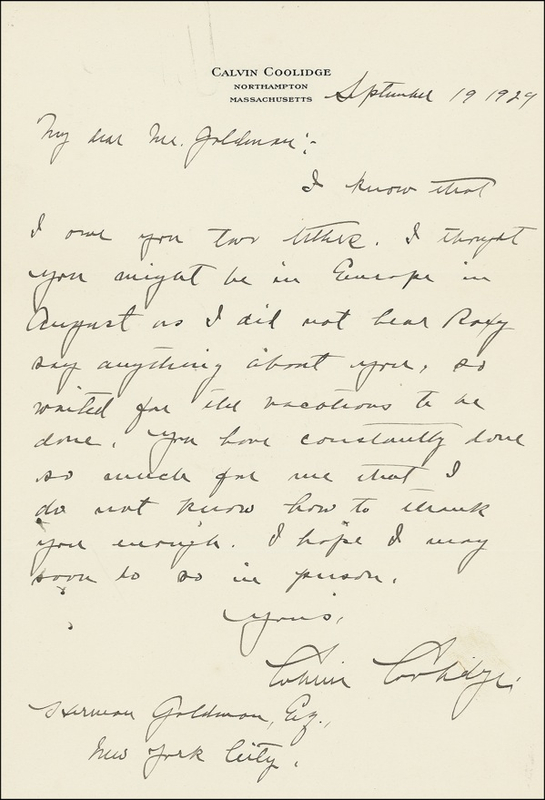 CALVIN COOLIDGE
NORTHAMPTON
MASSACHUSETTS
September 19 1929
My dear Mr. Goldman:-
I know that
I owe you two letters. I thought
you might be in Europe in
August as I did not hear Roxy
say anything about you, so
waited for the vacations to be
done. You have constantly done
so much for me that I
do not know how to thank
you enough. I hope I may
soon do so in person.
Yours,
Calvin Coolidge.
Herman Goldman, Esq.,
New York City.